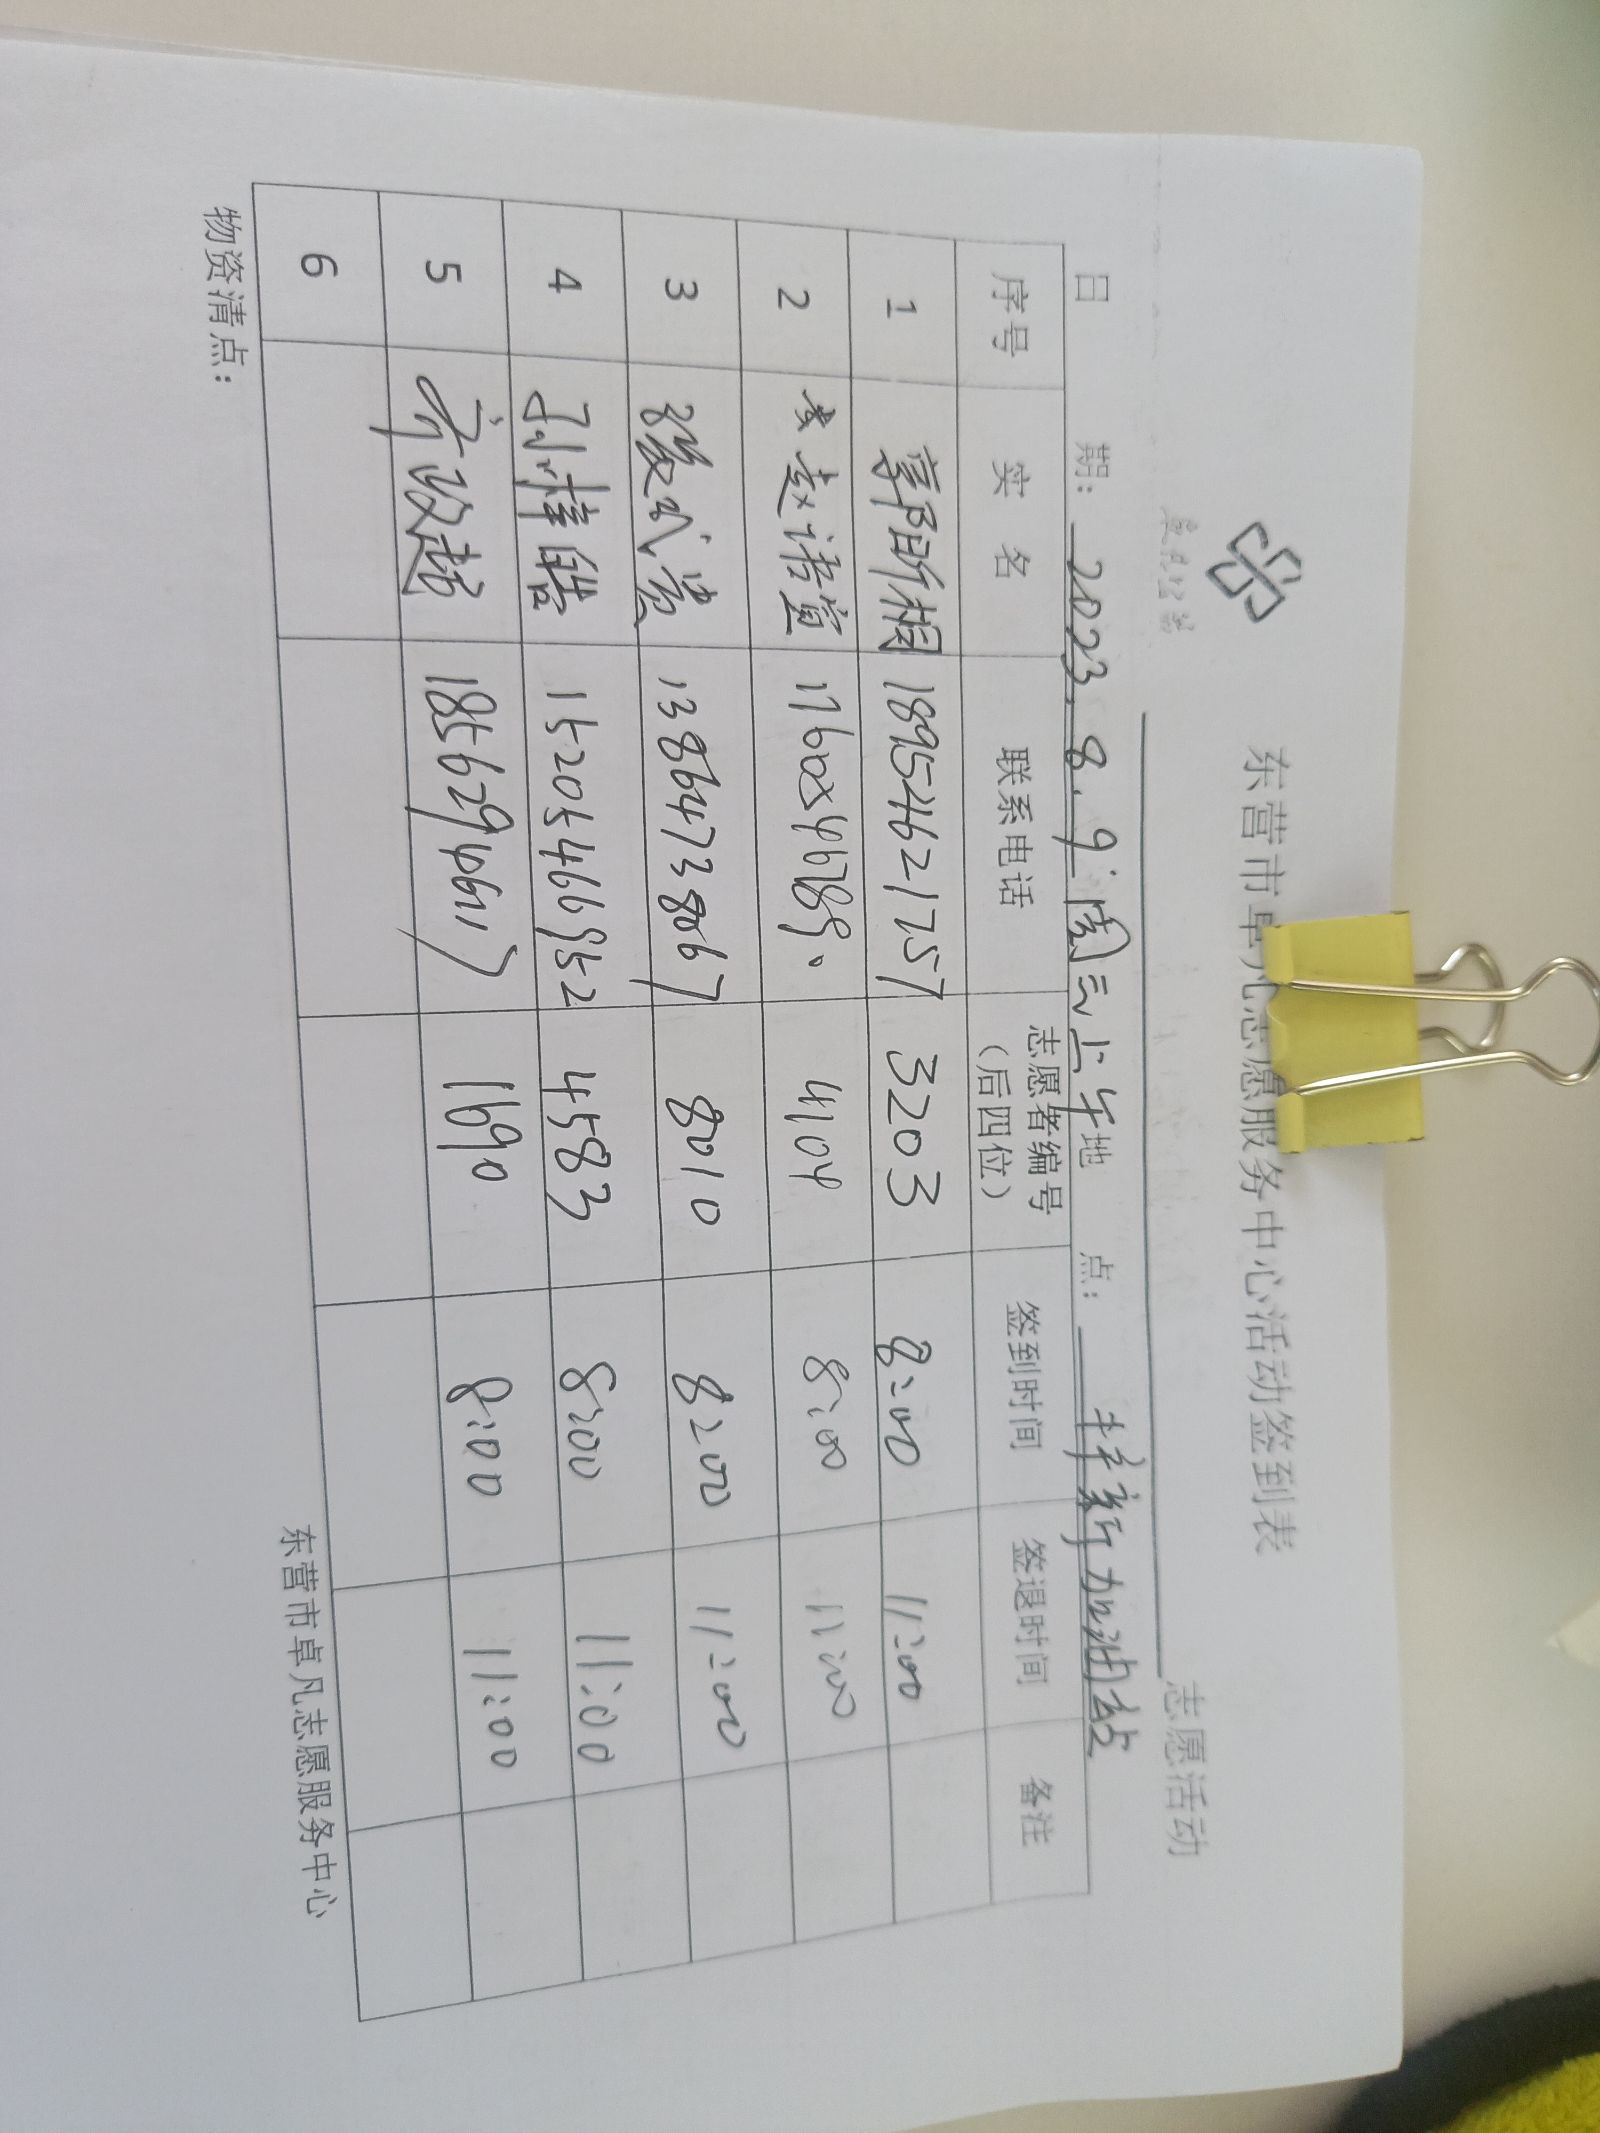 东营市卓凡志愿服务中心活动签到表
志愿活动
日 期: 2023.8.9 周三上午 地 点: 祥新加油站
序号 实 名 联系电话 志愿者编号(后四位) 签到时间 签退时间 备注
1 18954621757 3203 8:00 11:00
2 赵语萱 4104 8:00 11:00
3 13864738067 8010 8:00 11:00
4 孙梓皓 15205466952 4583 8:00 11:00
5 18562946117 1690 8:00 11:00
6
物资清点:
东营市卓凡志愿服务中心